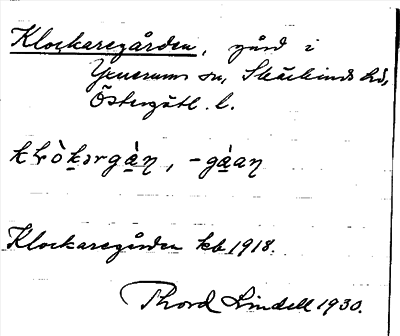 Klockaregården, gård i
Yxnerums sn, Skärkinds hd,
Östergötl. l.
-gàan
Klockaregården kb 1918.
Thord Lindell 1930.